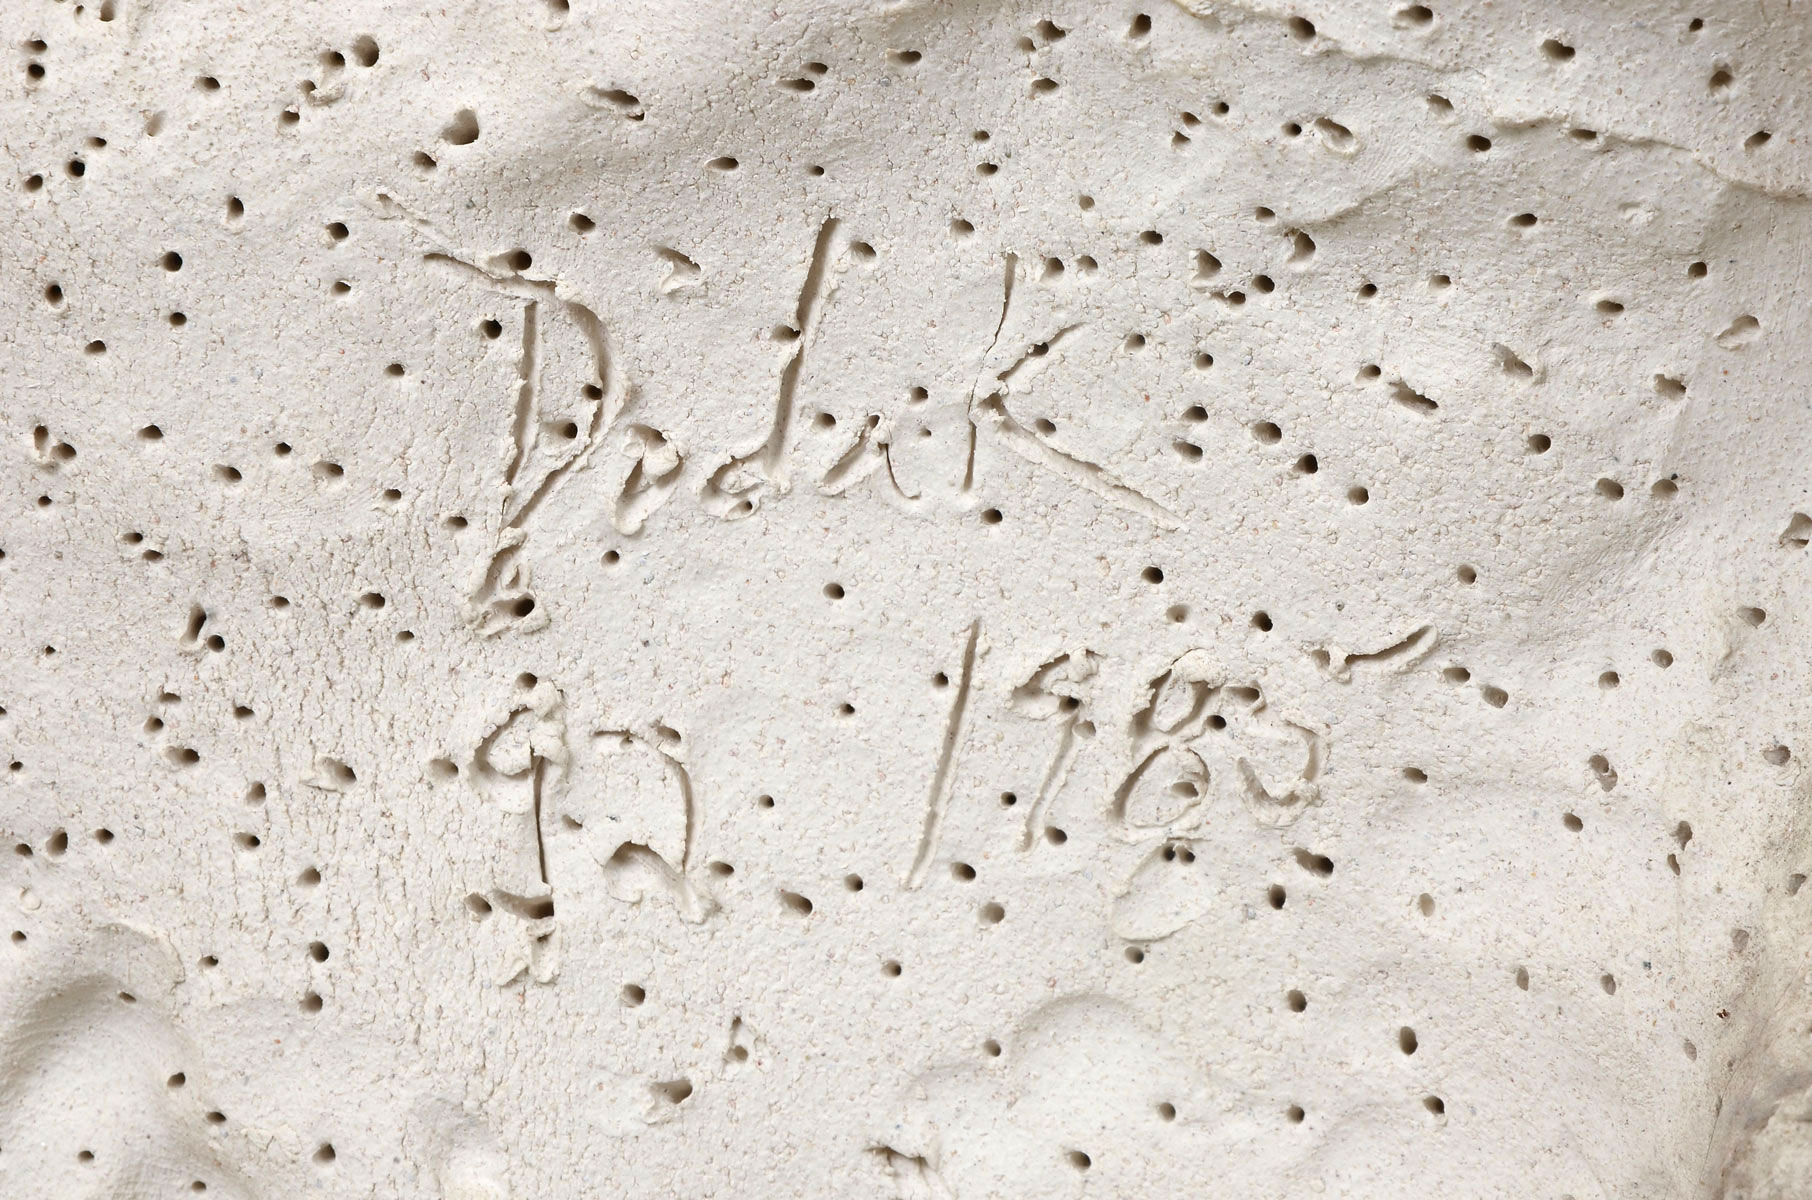 Dodik
92 1985